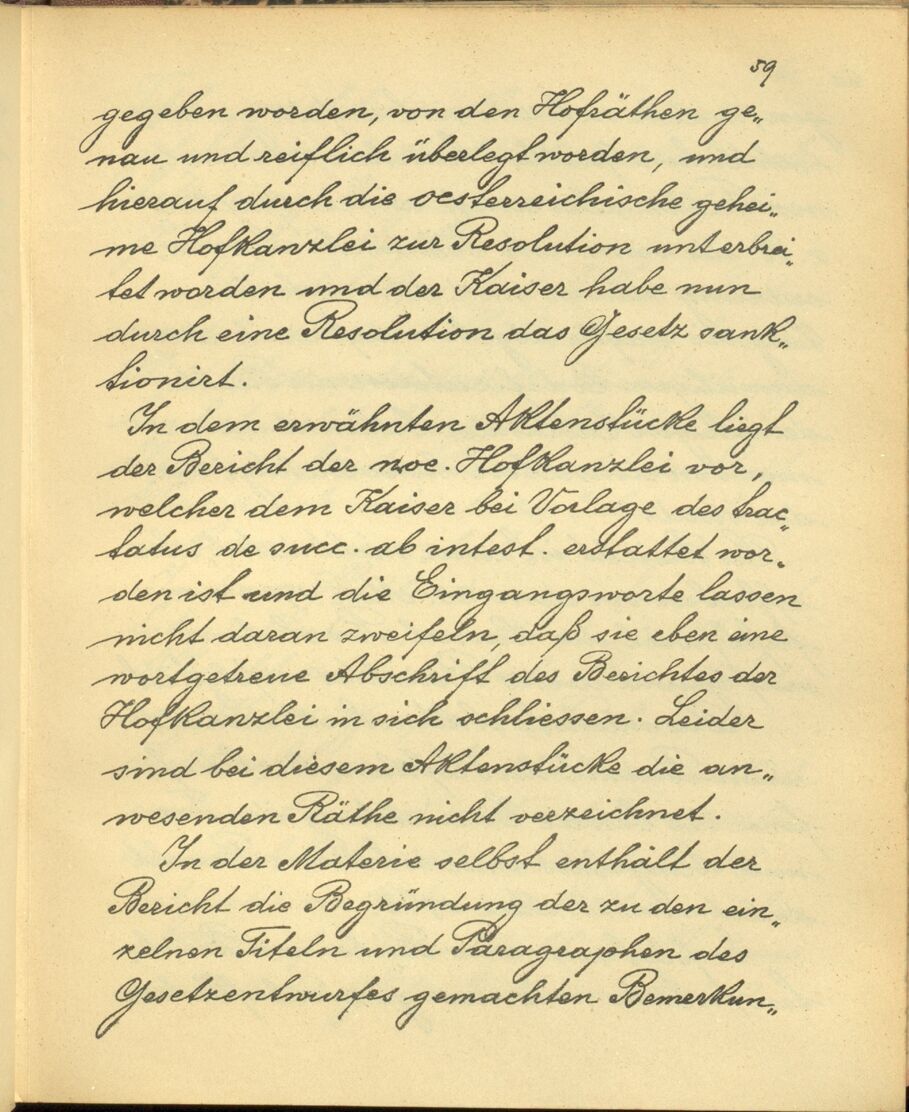 59
gegeben worden, von den Hofräthen ge„
nau und reiflich überlegt worden, und
hierauf durch die oesterreichische gehei„
me Hofkanzlei zur Resolution unterbrei„
tet worden und der Kaiser habe nun
durch eine Resolution das Gesetz sank„
tionirt.
In dem erwähnten Aktenstücke liegt
der Bericht der noe. Hofkanzlei vor,
welcher dem Kaiser bei Vorlage des trac„
tatus de succ. ab intest. erstattet wor„
den ist und die Eingangsworte lassen
nicht daran zweifeln, daß sie eben eine
wortgetreue Abschrift des Berichtes der
Hofkanzlei in sich schliessen. Leider
sind bei diesem Aktenstücke die an„
wesenden Räthe nicht verzeichnet.
In der Materie selbst enthält der
Bericht die Begründung der zu den ein„
zelnen Titeln und Paragraphen des
Gesetzentwurfes gemachten Bemerkun„